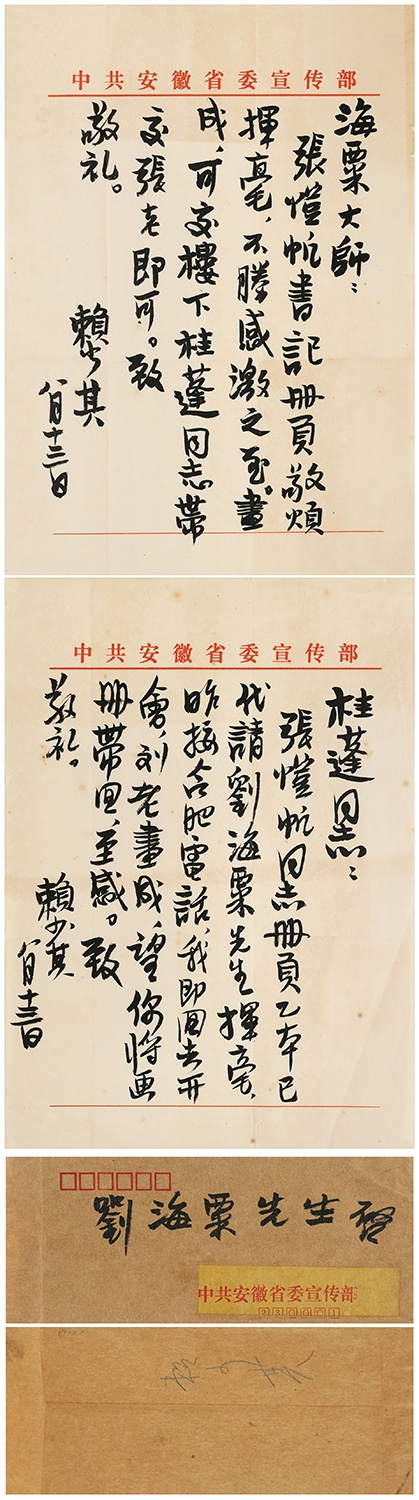 中共安徽省委宣传部
海粟大師：
張愷帆書記册頁敬煩
揮毫，不勝感激之至。畫
成，可交樓下桂蓬同志帶
交張老即可。致
敬礼。
賴少其
八月十三日
中共安徽省委宣传部
桂蓬同志：
張愷帆同志册頁乙本已
代請劉海粟先生揮毫，
昨接合肥電話，我即回去开
會，刘老畫成，望你将画
册帶回，至感。致
敬礼。
賴少其
八月十三日
劉海粟先生啓
中共安徽省委宣传部
230001